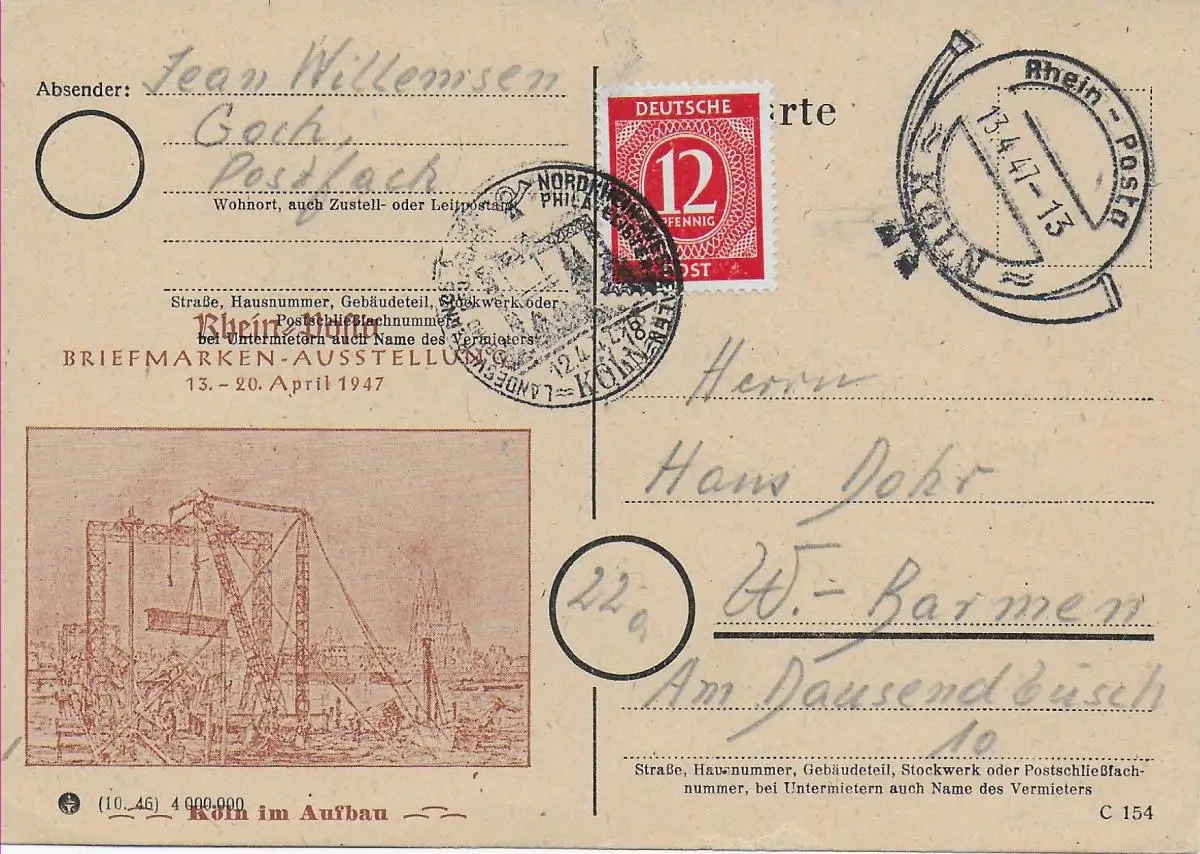 Absender: Jean Willemsen
Goch,
Postfach
Wohnort, auch Zustell- oder Leitpostamt
Straße, Hausnummer, Gebäudeteil, Stockwerk oder
Postschließfachnummer
bei Untermietern auch Name des Vermieters
Rhein-Posta
BRIEFMARKEN-AUSSTELLUNG
13.-20. April 1947
Köln im Aufbau
(10. 46) 4 000 000
DEUTSCHE
12
PFENNIG
POST
rte
KÖLN
12.4.47-18
Rhein-Posta
13.4.47-13
KÖLN
Herrn
Hans Dohr
22a
W.- Barmen
Am Dausendbusch
10
Straße, Hausnummer, Gebäudeteil, Stockwerk oder Postschließfach-
nummer, bei Untermietern auch Name des Vermieters
C 154